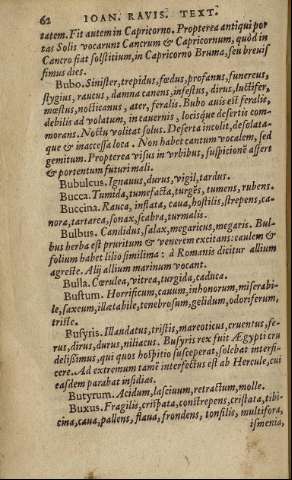 62 IOAN. RAVIS. TEXT.
tatem. Fit autem in Capricorno. Propterea antiqui por
tas Solis vocarunt Cancrum & Capricornum, quòd in
Cancro fiat solstitium, in Capricorno Bruma, seu brevis
simus dies.
Bubo. Sinister, trepidus, fœdus, profanus, funereus,
stygius, raucus, damna canens, infestus, dirus, luctifer,
mœstus, noctivanus, ater, feralis. Bubo auis est feralis,
debilis ad volatum, in cauernis, locisque desertis com-
morans. Noctu volitat solus. Deserta incolit, desolata-
que & inaccessa loca. Non habet cantum vocalem, sed
gemitum. Propterea visus in vrbibus, suspicionē affert
& portentum futuri mali.
Bubulcus. Ignauus, durus, vigil, tardus.
Bucca. Tumida, tumefacta, turgēs, tumens, rubens.
Buccina. Rauca, inflata, caua, hostilis, strepens, ca-
nora, tartarea, sonax, scabra, turmalis.
Bulbus. Candidus, salax, megaricus, megaris. Bul-
bus herba est pruritum & venerem excitans: caulem &
folium habet lilio simillima: à Romanis dicitur allium
agreste. Alij allium marinum vocant.
Bulla. Cœrulea, vitrea, turgida, caduca.
Bustum. Horrificum, cauum, inhonorum, miserabi-
le, saxeum, illætabile, tenebrosum, gelidum, odoriferum,
triste.
Busyris. Illaudatus, tristis, mareoticus, cruentus, fe-
rus, dirus, durus, niliacus. Busyris rex fuit Ægypti cru
delissimus, qui quos hospitio susceperat, solebat interfi-
cere. Ad extremum tamē interfectus est ab Hercule, cui
easdem parabat insidias.
Butyrum. Acidum, lasciuum, retractum, molle.
Buxus. Fragilis, crispata, constrepens, cristata, tibi-
cina, caua, pallens, flaua, frondens, tonsilis, multifora,
ismenia,